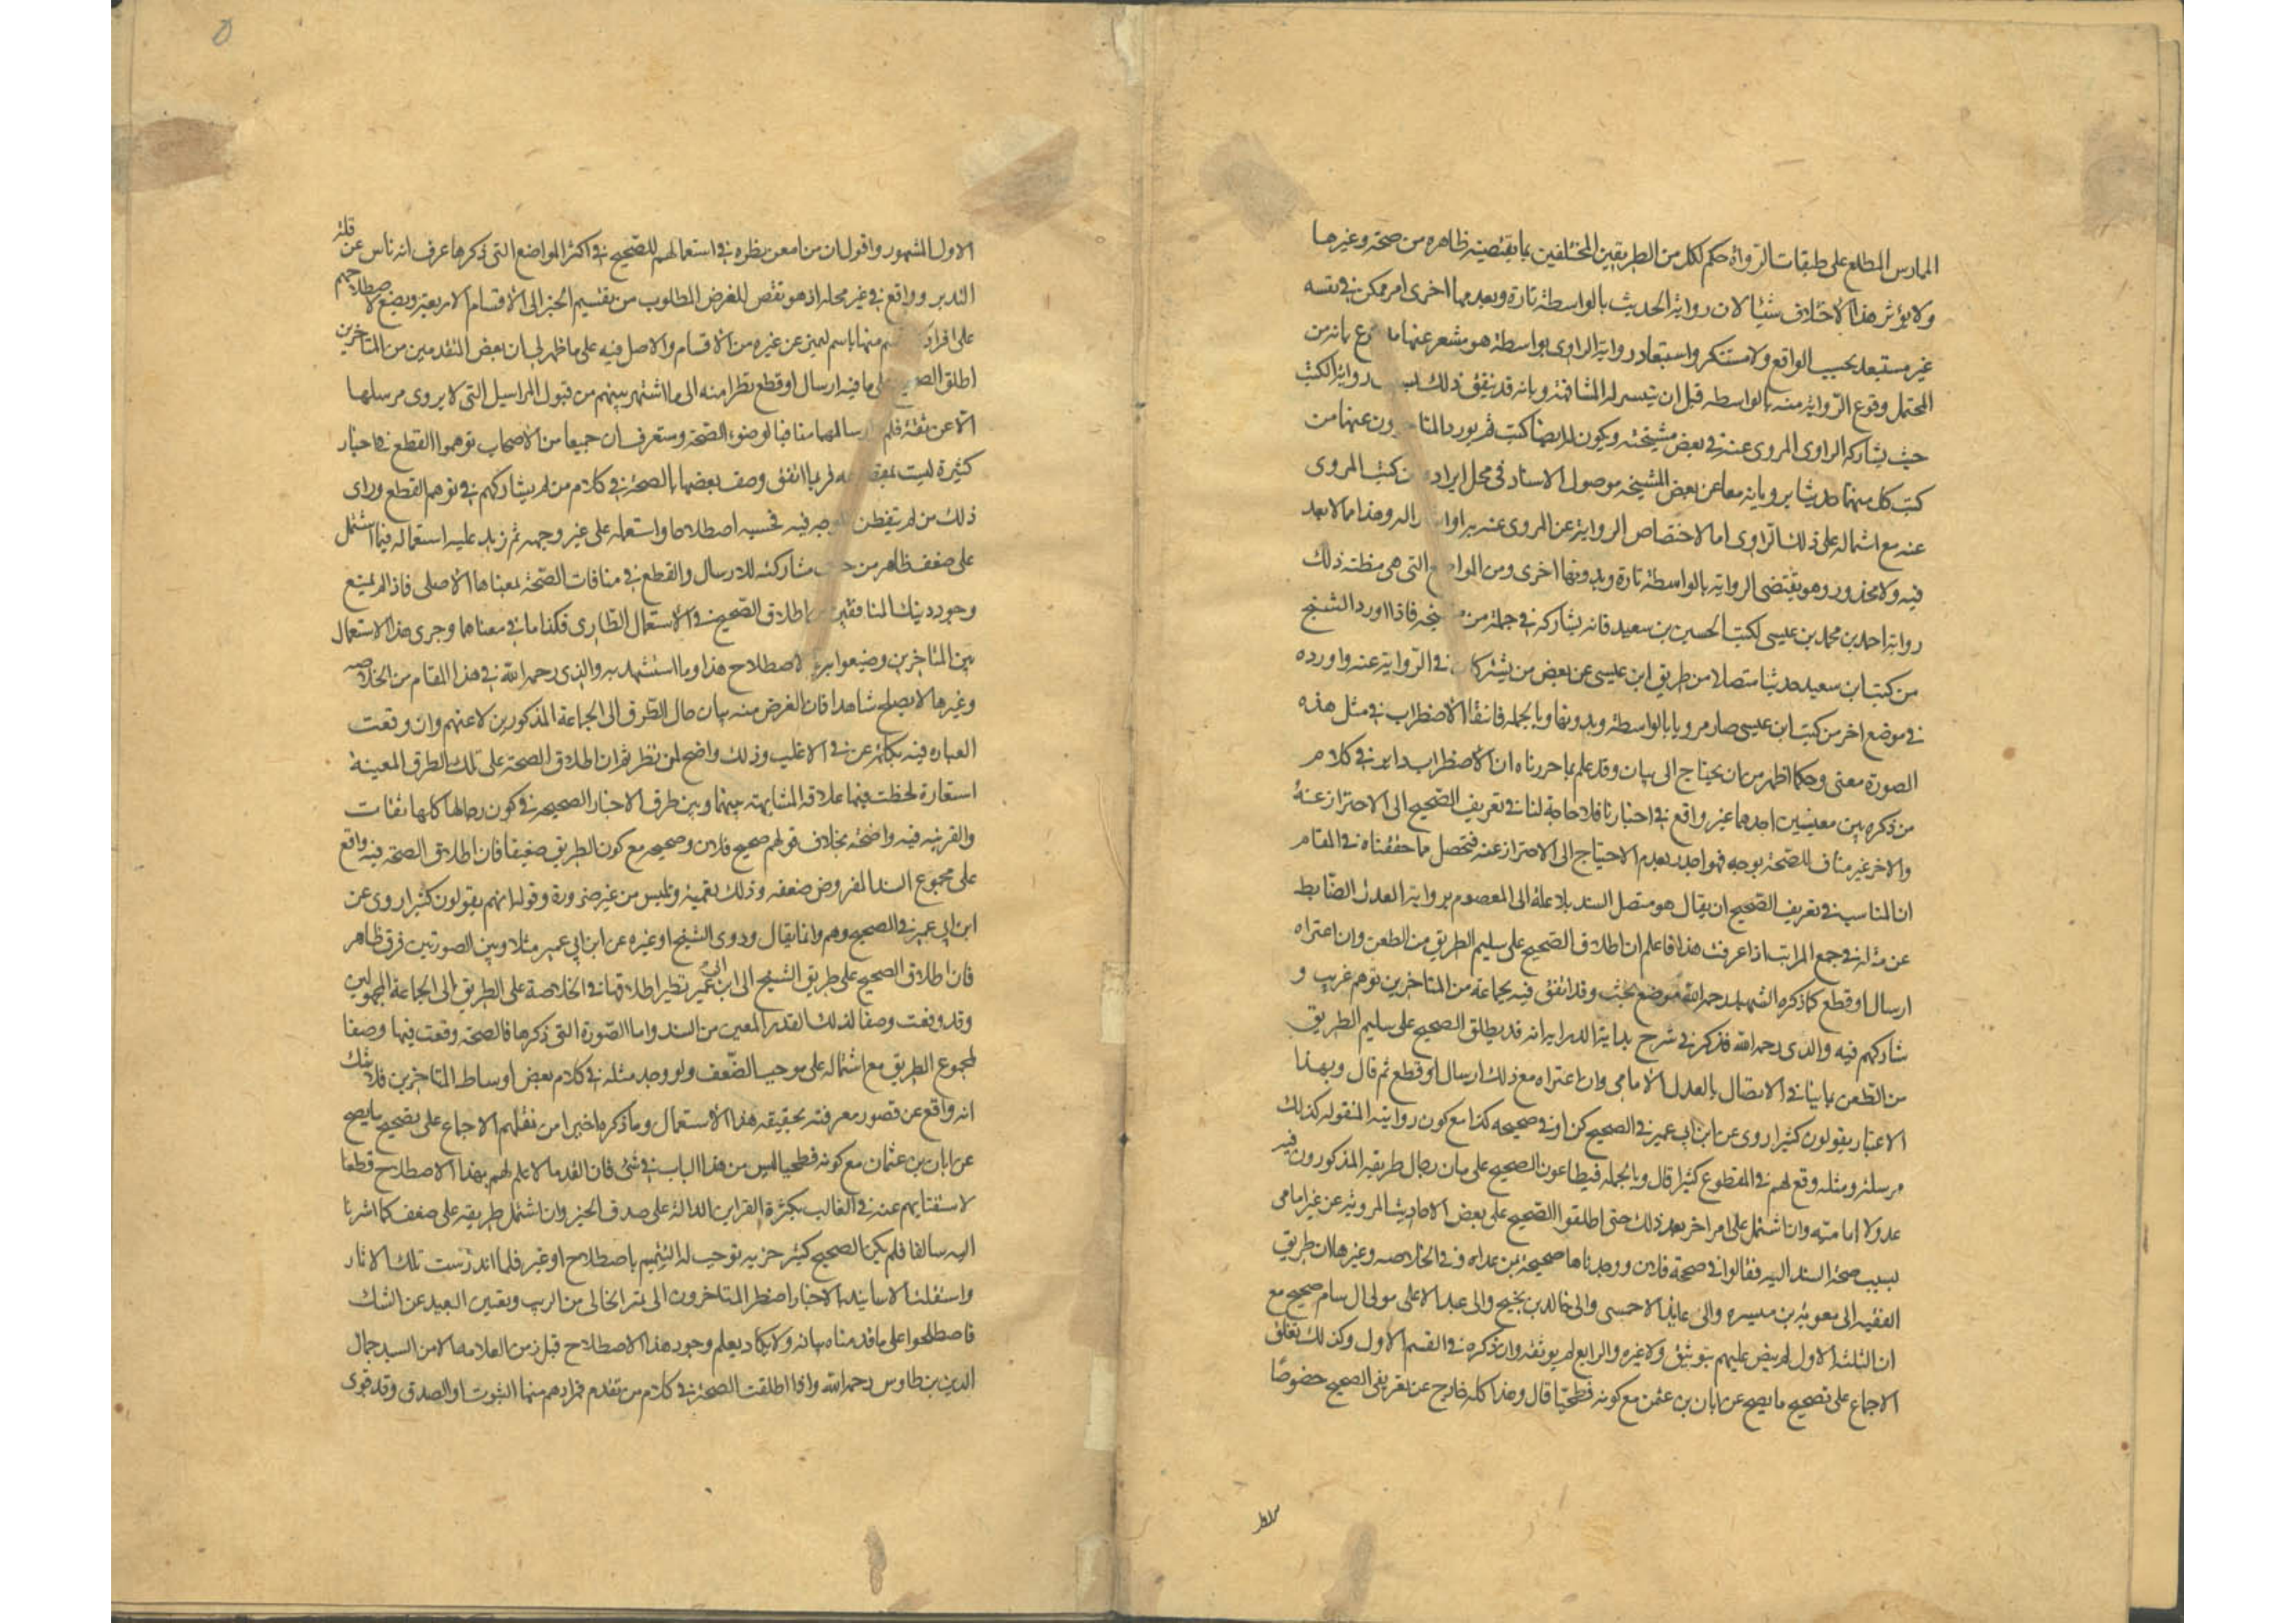 الممارس المطلع على طبقات الرواة حكم لكل من الطريقين المختلفين بما يقتضيه ظاهره من صحة وغيرها
ولا يؤثر هذا الاختلاف شيئا لان رواية الحديث بالواسطة تارة وبعدمها اخرى امر ممكن في نفسه
غير مستبعد بحسب الواقع ولا مستنكر واستبعاد رواية الراوى بواسطة هو مستغن عنها مدفوع بانه من
المحتمل وقوع الرواية منه بالواسطة قبل ان يتيسر له المشافهة وبانه قد يتفق ذلك بسبب رواية الكتب
حيث يشاركه الراوى المروى عنه في بعض مشيخته ويكون له ايضا كتب ثم يورد المتاخرون عنهما من
كتب كل منهما حديثا يرويانه معا عن بعض المشيخة موصول الاسناد في محل ايراده من كتب المروى
عنه مع اشماله على ذلك الراوى اما لاختصاص الرواية عن المروى عنه به او ايثارا له وهذا مما لا بعد
فيه ولا محذور وهو يقتضى الرواية بالواسطة تارة وبدونها اخرى ومن المواضع التى هى مظنة ذلك
رواية احمد بن محمد بن عيسى لكتب الحسين بن سعيد فانه يشاركه في جملة من مشيخته فاذا اورد الشيخ
من كتب ابن سعيد حديثا متصلا من طريق ابن عيسى عن بعض من يشتركان في الرواية عنه واورده
في موضع اخر من كتب ابن عيسى صار مرويا بالواسطة وبدونها وبالجملة فانتفاء الاضطراب في مثل هذه
الصورة معنى وحكما اظهر من ان يحتاج الى بيان وقد علم بما حررناه ان الاضطراب داير في كلام
من ذكره بين معنيين احدهما غير واقع في اخبارنا فلا حاجة لنا في تعريف الصحيح الى الاحتراز عنه
والاخر غير مناف للصحة بوجه فهو اجدر بعدم الاحتياج الى الاحتراز عنه فتحصل مما حققناه في المقام
ان المناسب في تعريف الصحيح ان يقال هو متصل السند بلا علة الى المعصوم برواية العدل الضابط
عن مثله في جمع المراتب اذا عرفت هذا فاعلم ان اطلاق الصحيح على سليم الطريق من الطعن وان اعتراه
ارسال او قطع كما ذكره الشهيد رحمه الله موضع بحث وقد اتفق فيه لجماعة من المتاخرين توهم غريب و
شاركهم فيه والدى رحمه الله فذكر في شرح بداية الدراية انه قد يطلق الصحيح على سليم الطريق
من الطعن بما ينافي الاتصال بالعدل الامامى وان اعتراه مع ذلك ارسال او قطع ثم قال وبهذا
الاعتبار يقولون كثيرا روى عن ابن ابى عمير في الصحيح كذا او في صحيحه كذا مع كون روايته المنقولة كذلك
مرسلة ومثله وقع لهم في المقطوع كثيرا قال وبالجملة فيطلقون الصحيح على ما كان رجال طريقه المذكورون فيه
عدولا امامية وان اشتمل على امر اخر بعد ذلك حتى اطلقوا الصحيح على بعض الاحاديث المروية عن غير امامى
بسبب صحة السند اليه فقالوا في صحيحة فلان ووجدناها صحيحة بمن عداه وفي الخلاصه وغيرها ان طريق
الفقيه الى معوية بن ميسره والى عايذ الاحمسى والى خالد بن نجيح والى عبد الاعلى مولى ال سام صحيح مع
ان الثلثة الاول لم ينص عليهم بتوثيق ولا غيره والرابع لم يوثقه وان ذكره في القسم الاول وكذلك نقلوا
الاجماع على تصحيح ما يصح عن ابان بن عثمن مع كونه فطحيا قال وهذا كله خارج عن تعريف الصحيح خصوصا
الاول المشهور واقول ان من امعن نظره في استعمالهم للصحيح في اكثر المواضع التى ذكرها عرف انه ناش عن قلة
التدبر وواقع في غير محله اذ هو نقص للغرض المطلوب من تقسيم الخبر الى الاقسام الاربعة وتضييع لاصطلاحهم
على افراد كل قسم منها باسم ليميز عن غيره من الاقسام والاصل فيه على ما ظهر لى ان بعض المتقدمين من المتاخرين
اطلق الصحيح على ما فيه ارسال او قطع نظرا منه الى ما اشتهر بينهم من قبول المراسيل التى لا يروى مرسلها
الا عن ثقة فلم ارسالها منافيا لوصف الصحة وستعرف ان جميعا من الاصحاب توهموا القطع في اخبار
كثيرة ليست بمقطوعه فربما اتفق وصف بعضها بالصحة في كلام من لم يشاركهم في توهم القطع وراى
ذلك من لم يتفطن للوجه فيه فحسبه اصطلاحا واستعمله على غير وجهه ثم زيد عليه استعماله فيما اشتمل
على ضعف ظاهر من حيث مشاركته للارسال والقطع في منافات الصحة بمعناها الاصلى فاذا لم يمنع
وجود ذينك المنافيين من اطلاق الصحيح في الاستعمال الطارى فكذا ما في معناهما وجرى هذا الاستعمال
بين المتاخرين وضيعوا به الاصطلاح هذا وما استشهد به والدى رحمه الله في هذا المقام من الخلاصه
وغيرها لا يصلح شاهدا فان الغرض منه بيان حال الطرق الى الجماعة المذكورين لا عنهم وان وقعت
العباره فيه بكلمة عن في الاغلب وذلك واضح لمن نظر ثم ان اطلاق الصحة على تلك الطرق المعينة
استعارة لحظت فيها علاقة المشابهة بينها وبين طرق الاخبار الصحيحه في كون رجالها كلها ثقات
والقرينه فيه واضحه بخلاف قولهم صحيح فلان وصحيحه مع كون الطريق ضعيفا فان اطلاق الصحة فيه واقع
على مجموع السند المفروض ضعفه وذلك تعمية وتلبيس من غير ضرورة وقوله انهم يقولون كثيرا روى عن
ابن ابى عمير في الصحيح وهم وانما يقال وروى الشيخ او غيره عن ابن ابى عمير مثلا وبين الصورتين فرق ظاهر
فان اطلاق الصحيح على طريق الشيخ الى ابن ابى عمير نظير اطلاقها في الخلاصة على الطريق الى الجماعة المجهولين
وقد وقعت وصفا لذلك القدر المعين من السند واما الصورة التى ذكرها فالصحة وقعت فيها وصفا
لمجموع الطريق مع اشتماله على موجب الضعف ولو وجد مثله في كلام بعض اوساط المتاخرين فلا شك
انه واقع عن قصور معرفته بحقيقة هذا الاستعمال وما ذكره اخيرا من نقلهم الاجماع على تصحيح ما يصح
عن ابان بن عثمان مع كونه فطحيا ليس من هذا الباب في شى فان القدما لا علم لهم بهذا الاصطلاح قطعا
لاستغنايهم عنه في الغالب بكثرة القراين الدالة على صدق الخبر وان اشتمل طريقه على ضعف كما اشرنا
اليه سالفا فلم يكن للصحيح كثير مزية توجب له التمييز باصطلاح او غيره فلما اندرست تلك الاثار
واستقلت الاسانيد بالاخبار اضطر المتاخرون الى تمييز الخالى من الريب وتعيين البعيد عن الشك
فاصطلحوا على ما قدمناه بيانه ولا يكاد يعلم وجود هذا الاصطلاح قبل زمن العلامه الا من السيد جمال
الدين بن طاوس رحمه الله واذا اطلقت الصحة في كلام من تقدم فمرادهم منها الثبوت او الصدق وقد قوى